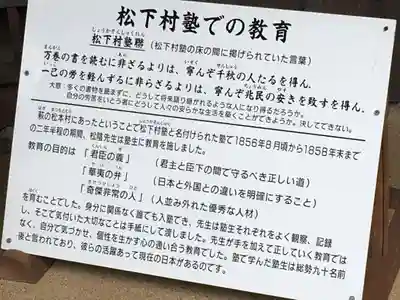 松下村塾での教育
松下村塾聯（松下村塾の床の間に掲げられていた言葉）
万巻の書を読むに非ざるよりは、寧んぞ千秋の人たるを得ん。
一己の労を軽んずるに非らざるよりは、寧んぞ兆民の安きを致すを得ん。
大意：多くの書物を読まずに、どうして将来語り継がれるような人になり得るだろうか。
自分の労苦をいとう者にどうして人々の安らかな生活を築くことができようか。決してできない。
萩の松本村にあったということで松下村塾と名付けられた塾で1856年8月頃から1858年末まで
の二年半程の期間、松陰先生は塾生に教育を施しました。
教育の目的は「君臣の義」（君主と臣下の間で守るべき正しい道）
「華夷の弁」（日本と外国との違いを明確にすること）
「奇傑非常の人」（人並み外れた優秀な人材）
を育むことでした。身分に関係なく誰でも入塾でき、先生は塾生それぞれをよく観察、記録
し、そこで気付いた大切なことは手紙にして渡しました。先生が手を加えて正していく教育では
なく、自分で気づかせ、個性を生かす心の通い合う教育でした。塾で学んだ塾生は総勢九十名前
後と言われており、彼らの活躍あって現在の日本があるのです。